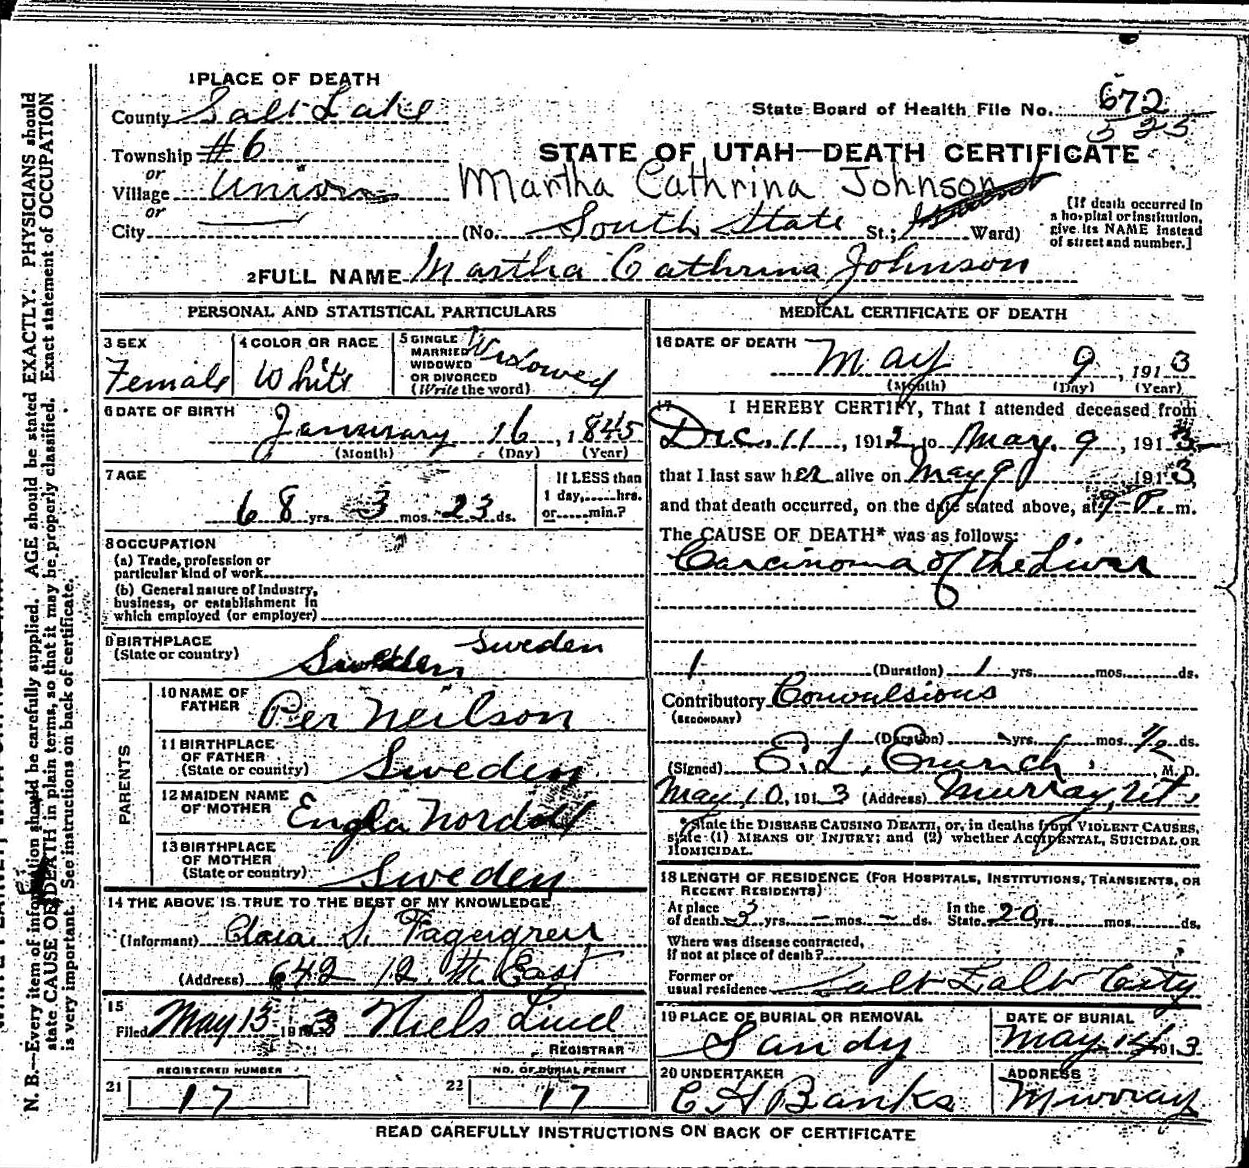 1 PLACE OF DEATH
County Salt Lake
State Board of Health File No. 672
525
Township #6
or
Village Union
or
City
STATE OF UTAH—DEATH CERTIFICATE
Martha Cathrina Johnson
(No. South State St.; Ward)
[If death occurred in
a hospital or institution,
give its NAME instead
of street and number.]
2 FULL NAME Martha Cathrina Johnson
PERSONAL AND STATISTICAL PARTICULARS
3 SEX
Female
4 COLOR OR RACE
White
5 SINGLE
MARRIED
WIDOWED
OR DIVORCED
(Write the word)
Widowed
6 DATE OF BIRTH
January 16, 1845
(Month) (Day) (Year)
7 AGE
68 yrs. 3 mos. 23 ds.
If LESS than
1 day,......hrs.
or......min.?
8 OCCUPATION
(a) Trade, profession or
particular kind of work
(b) General nature of industry,
business, or establishment in
which employed (or employer)
9 BIRTHPLACE
(State or country)
Sweden Sweden
PARENTS
10 NAME OF
FATHER
Per Neilson
11 BIRTHPLACE
OF FATHER
(State or country)
Sweden
12 MAIDEN NAME
OF MOTHER
Engla Nordal
13 BIRTHPLACE
OF MOTHER
(State or country)
Sweden
14 THE ABOVE IS TRUE TO THE BEST OF MY KNOWLEDGE
(Informant) Clara S. Fagergren
(Address) 642 12th East
15
Filed May 13 1913 Niels Lind
REGISTRAR
REGISTERED NUMBER
21 17
NO. OF BURIAL PERMIT
22 17
MEDICAL CERTIFICATE OF DEATH
16 DATE OF DEATH
May 9, 1913
(Month) (Day) (Year)
17 I HEREBY CERTIFY, That I attended deceased from
Dec. 11, 1912 to May. 9, 1913
that I last saw her alive on May 9 1913,
and that death occurred, on the date stated above, at 9 P. m.
The CAUSE OF DEATH* was as follows:
Carcinoma of the Liver
1 (Duration) 1 yrs. mos. ds.
Contributory Convulsions
(SECONDARY)
(Duration) yrs. mos. 1/2 ds.
(Signed) E. L. M. D.
May 10, 1913 (Address) Murray, Ut.
*State the DISEASE CAUSING DEATH, or, in deaths from VIOLENT CAUSES,
state (1) MEANS OF INJURY; and (2) whether ACCIDENTAL, SUICIDAL OR
HOMICIDAL.
18 LENGTH OF RESIDENCE (FOR HOSPITALS, INSTITUTIONS, TRANSIENTS, OR
RECENT RESIDENTS)
At place
of death 3 yrs. – mos. – ds.
In the
State 20 yrs. mos. ds.
Where was disease contracted,
if not at place of death?
Former or
usual residence Salt Lake City
19 PLACE OF BURIAL OR REMOVAL
Sandy
DATE OF BURIAL
May 14 1913
20 UNDERTAKER
E H Banks
ADDRESS
Murray
READ CAREFULLY INSTRUCTIONS ON BACK OF CERTIFICATE
N. B.—Every item of information should be carefully supplied. AGE should be stated EXACTLY. PHYSICIANS should
state CAUSE OF DEATH in plain terms, so that it may be properly classified. Exact statement of OCCUPATION
is very important. See instructions on back of certificate.